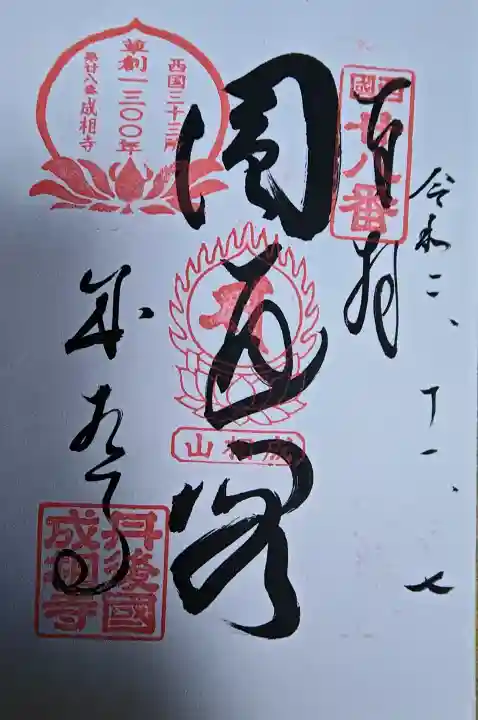 令和二、十一、七
奉拝
西國
廿八番
圓通閣
成相山
西国三十三所
草創一三〇〇年
第廿八番 成相寺
成相寺
丹後國
成相寺